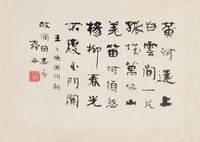 黄河遠上
白雲間一片
孤城萬仞山
羌笛何須怨
楊柳春光
不度玉門關
王之渙涼州詞